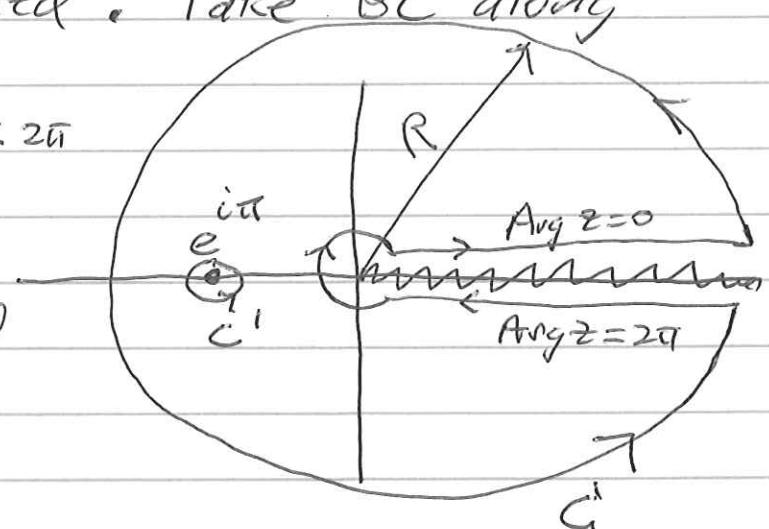 Take BC along
2π
R
iπ
Arg z=0
e
C'
Arg z=2π
C'